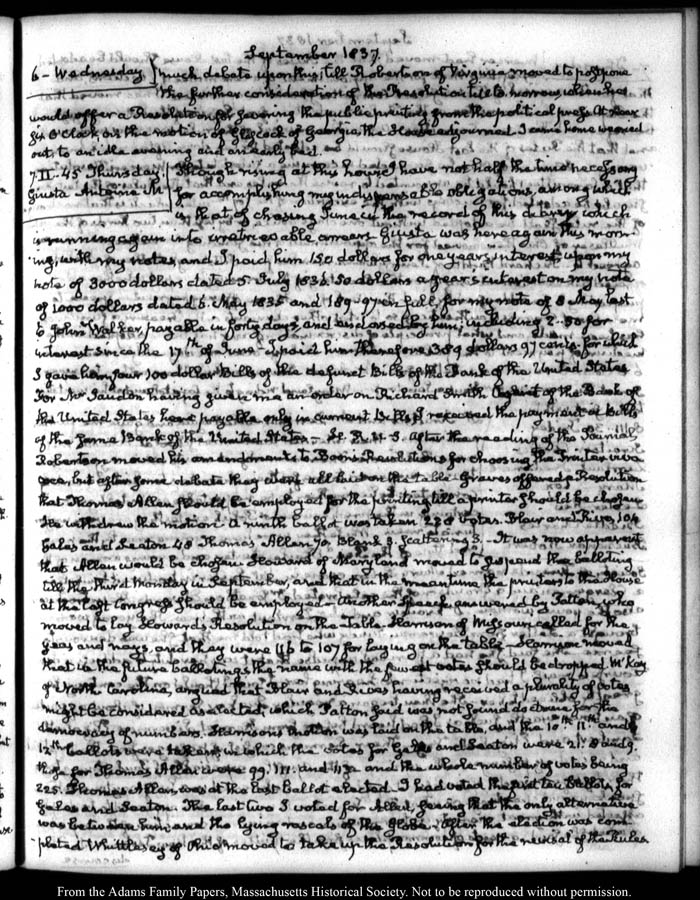 September 1837.
6 - Wednesday. } much debate upon this, till Robertson of Virginia moved to postpone
the further consideration of the Resolution till to-morrow when he
would offer a Resolution for severing the public printing from the political press. At near
six O'Clock on the motion of Glascock of Georgia, the House adjourned. I came home wearied
out, to an idle evening and an early bed.
7. II. 45 Thursday. Though rising at this hour I have not half the time necessary
Giusta Antoine M for accomplishing my indispensable obligations, among which
is that of chasing Time in the record of this diary which
is running again into irretrievable arrears. Giusta was here again this morn-
ing, with my notes, and I paid him 150 dollars for one years interest upon my
note of 3000 dollars dated 5. July 1836, 50 dollars a years interest on my note
of 1000 dollars dated 6. May 1835 and 189-97 in full for my note of 8 May last
to John Walker, payable in forty days, and endorsed by him, including 2-50 for
interest since the 17th of June. I paid him therefore 389 dollars 97 cents, for which
I gave him four 100 dollar Bills of the defunct Bills of the Bank of the United States
For Mr Jaudon having given me an order on Richard Smith Cashier of the Bank of
the United States here payable only in current Bills, I received the payment in Bills
of the same Bank of the United States — H. R. U. S. After the reading of the Journal
Robertson moved his amendments to Boon's Resolutions for choosing the Printer viva
voce, but after some debate they were all laid on the table. Graves offered a Resolution
that Thomas Allen should be employed for the printing till a printer should be chosen
He withdrew the motion. A ninth ballot was taken 228 votes. Blair and Rives 104
Gales and Seaton 48 Thomas Allen 70. Blank 3. Scattering 3. It was now apparent
that Allen would be chosen. Howard of Maryland moved to suspend the balloting
till the third Monday in September, and that in the meantime the printers to the House
at the last Congress should be employed. Another Speech answered by Patton, who
moved to lay Howard's Resolution on the Table. Harrison of Missouri called for the
yeas and nays, and they were 116 to 107 for laying on the table. Harrison moved
that in the future ballotings the name with the fewest votes should be dropped. McKay
of North Carolina, argued that Blair and Rives having received a plurality of votes
might be considered as elected, which Patton said was not sound doctrine for the
democracy of numbers. Harrison's motion was laid on the table, and the 10th 11th and
12th ballots were taken, in which the votes for Gales and Seaton were 21. 8 and 9.
those for Thomas Allen were 99, 111. and 113 and the whole number of votes being
225. Thomas Allen was at the last ballot elected. I had voted the first ten Ballots for
Gales and Seaton. The last two I voted for Allen, seeing that the only alternative
was between him and the lying rascals of the Globe. After the election was com-
pleted Whittlesey of Ohio moved to take up the Resolution for the revisal of the Rules
From the Adams Family Papers, Massachusetts Historical Society. Not to be reproduced without permission.